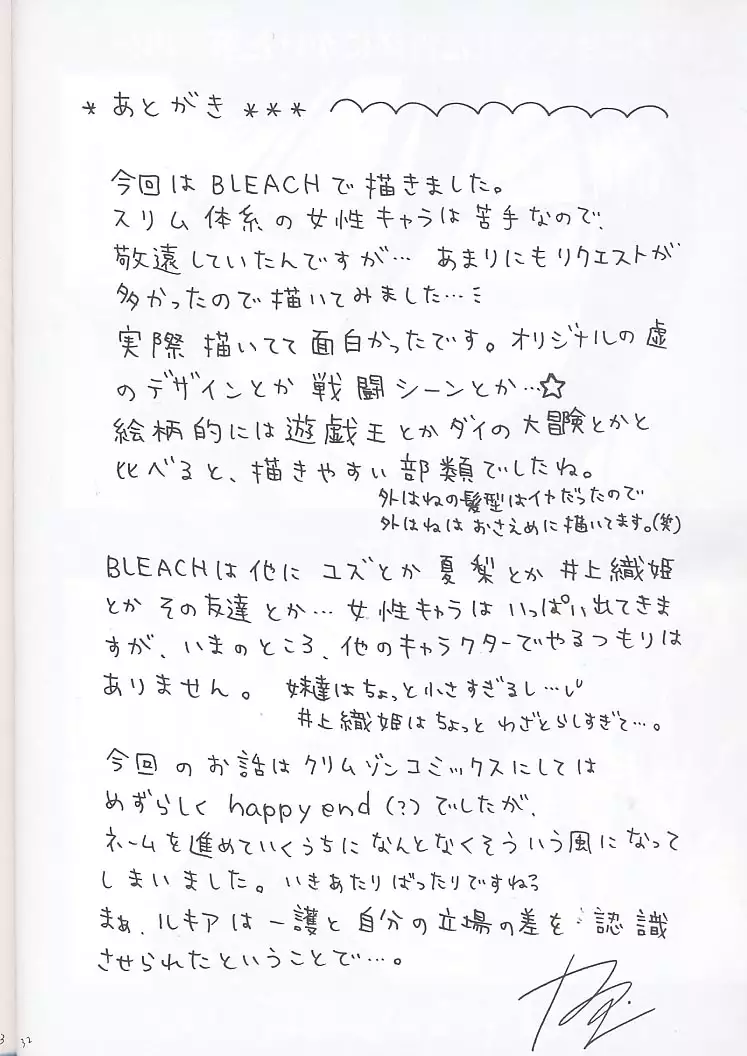 * あとがき ***
今回は BLEACHで描きました。
スリム体系の女性キャラは苦手なので、
敬遠していたんですが… あまりにもリクエストが
多かったので描いてみました…ミ
実際描いてて面白かったです。オリジナルの虚
のデザインとか戦闘シーンとか…☆
絵柄的には遊戯王とかダイの大冒険とかと
比べると、描きやすい部類でしたね。
外はねの髪型はイヤだったので
外はねはおさえめに描いてます。(笑)
BLEACHは他に ユズとか 夏梨とか 井上織姫
とか その友達とか… 女性キャラは いっぱい出てきま
すが、いまのところ、他のキャラクターでやるつもりは
ありません。 妹達はちょっと小さすぎるし…
井上織姫はちょっと わざとらしすぎて…。
今回のお話はクリムゾンコミックスにしては
めずらしく happy end (?) でしたが、
ネームを進めていくうちになんとなくそういう風になって
しまいました。いきあたりばったりですね
まぁ、ルキアは一護と自分の立場の差を 認識
させられたということで…。
32